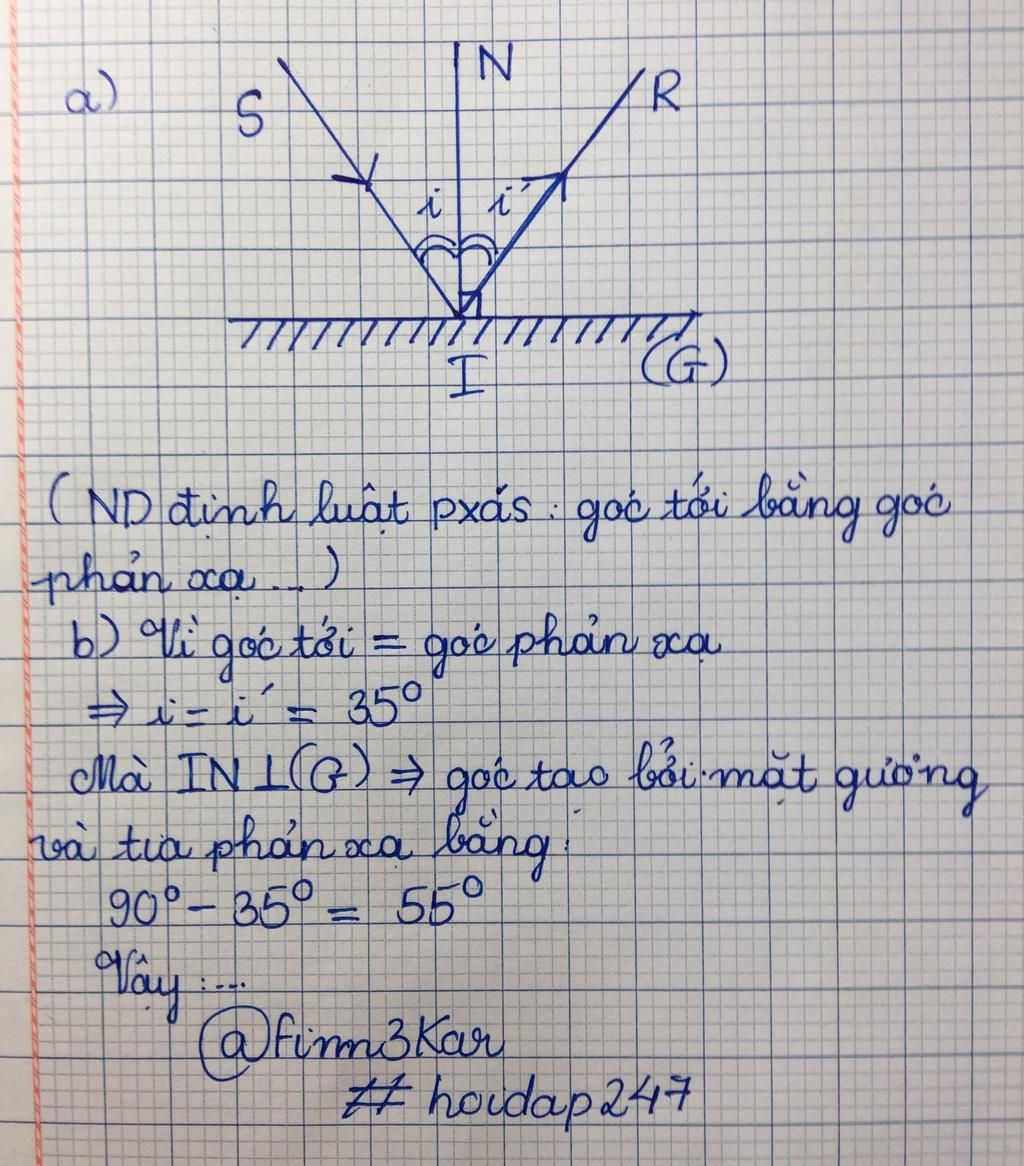 a)
S
N
R
i
i'
I
(G)
(ND định luật pxás: góc tới bằng góc
phản xạ...)
b) Vì góc tới = góc phản xạ
⇒ i = i' = 35°
Mà IN ⊥ (G) ⇒ góc tạo bởi mặt gương
và tia phản xạ bằng:
90° - 35° = 55°
Vậy:...
@finn3Kar
# hoidap247